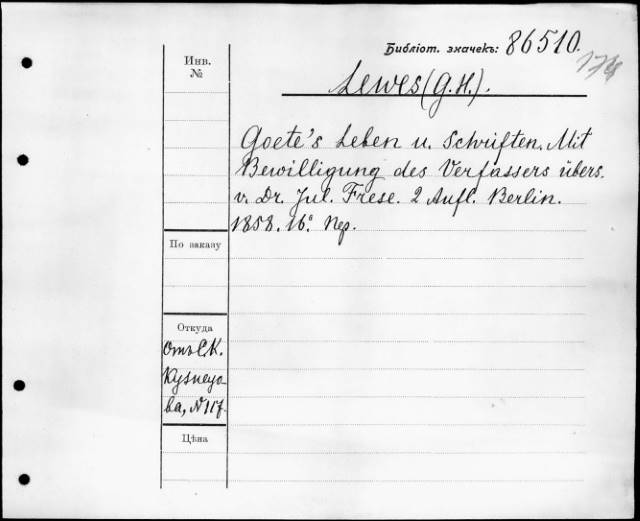 Библіот. значекъ: 86510.
174
Инв. №
Lewes (G.H.).
Goete's Leben u. Schriften. Mit
Bewilligung des Verfassers übers.
v. Dr. Jul. Frese. 2 Aufl. Berlin.
1858. 16°. Пер.
По заказу
Откуда
Отъ С.К.
Кузнецо-
ва, № 117.
Цѣна